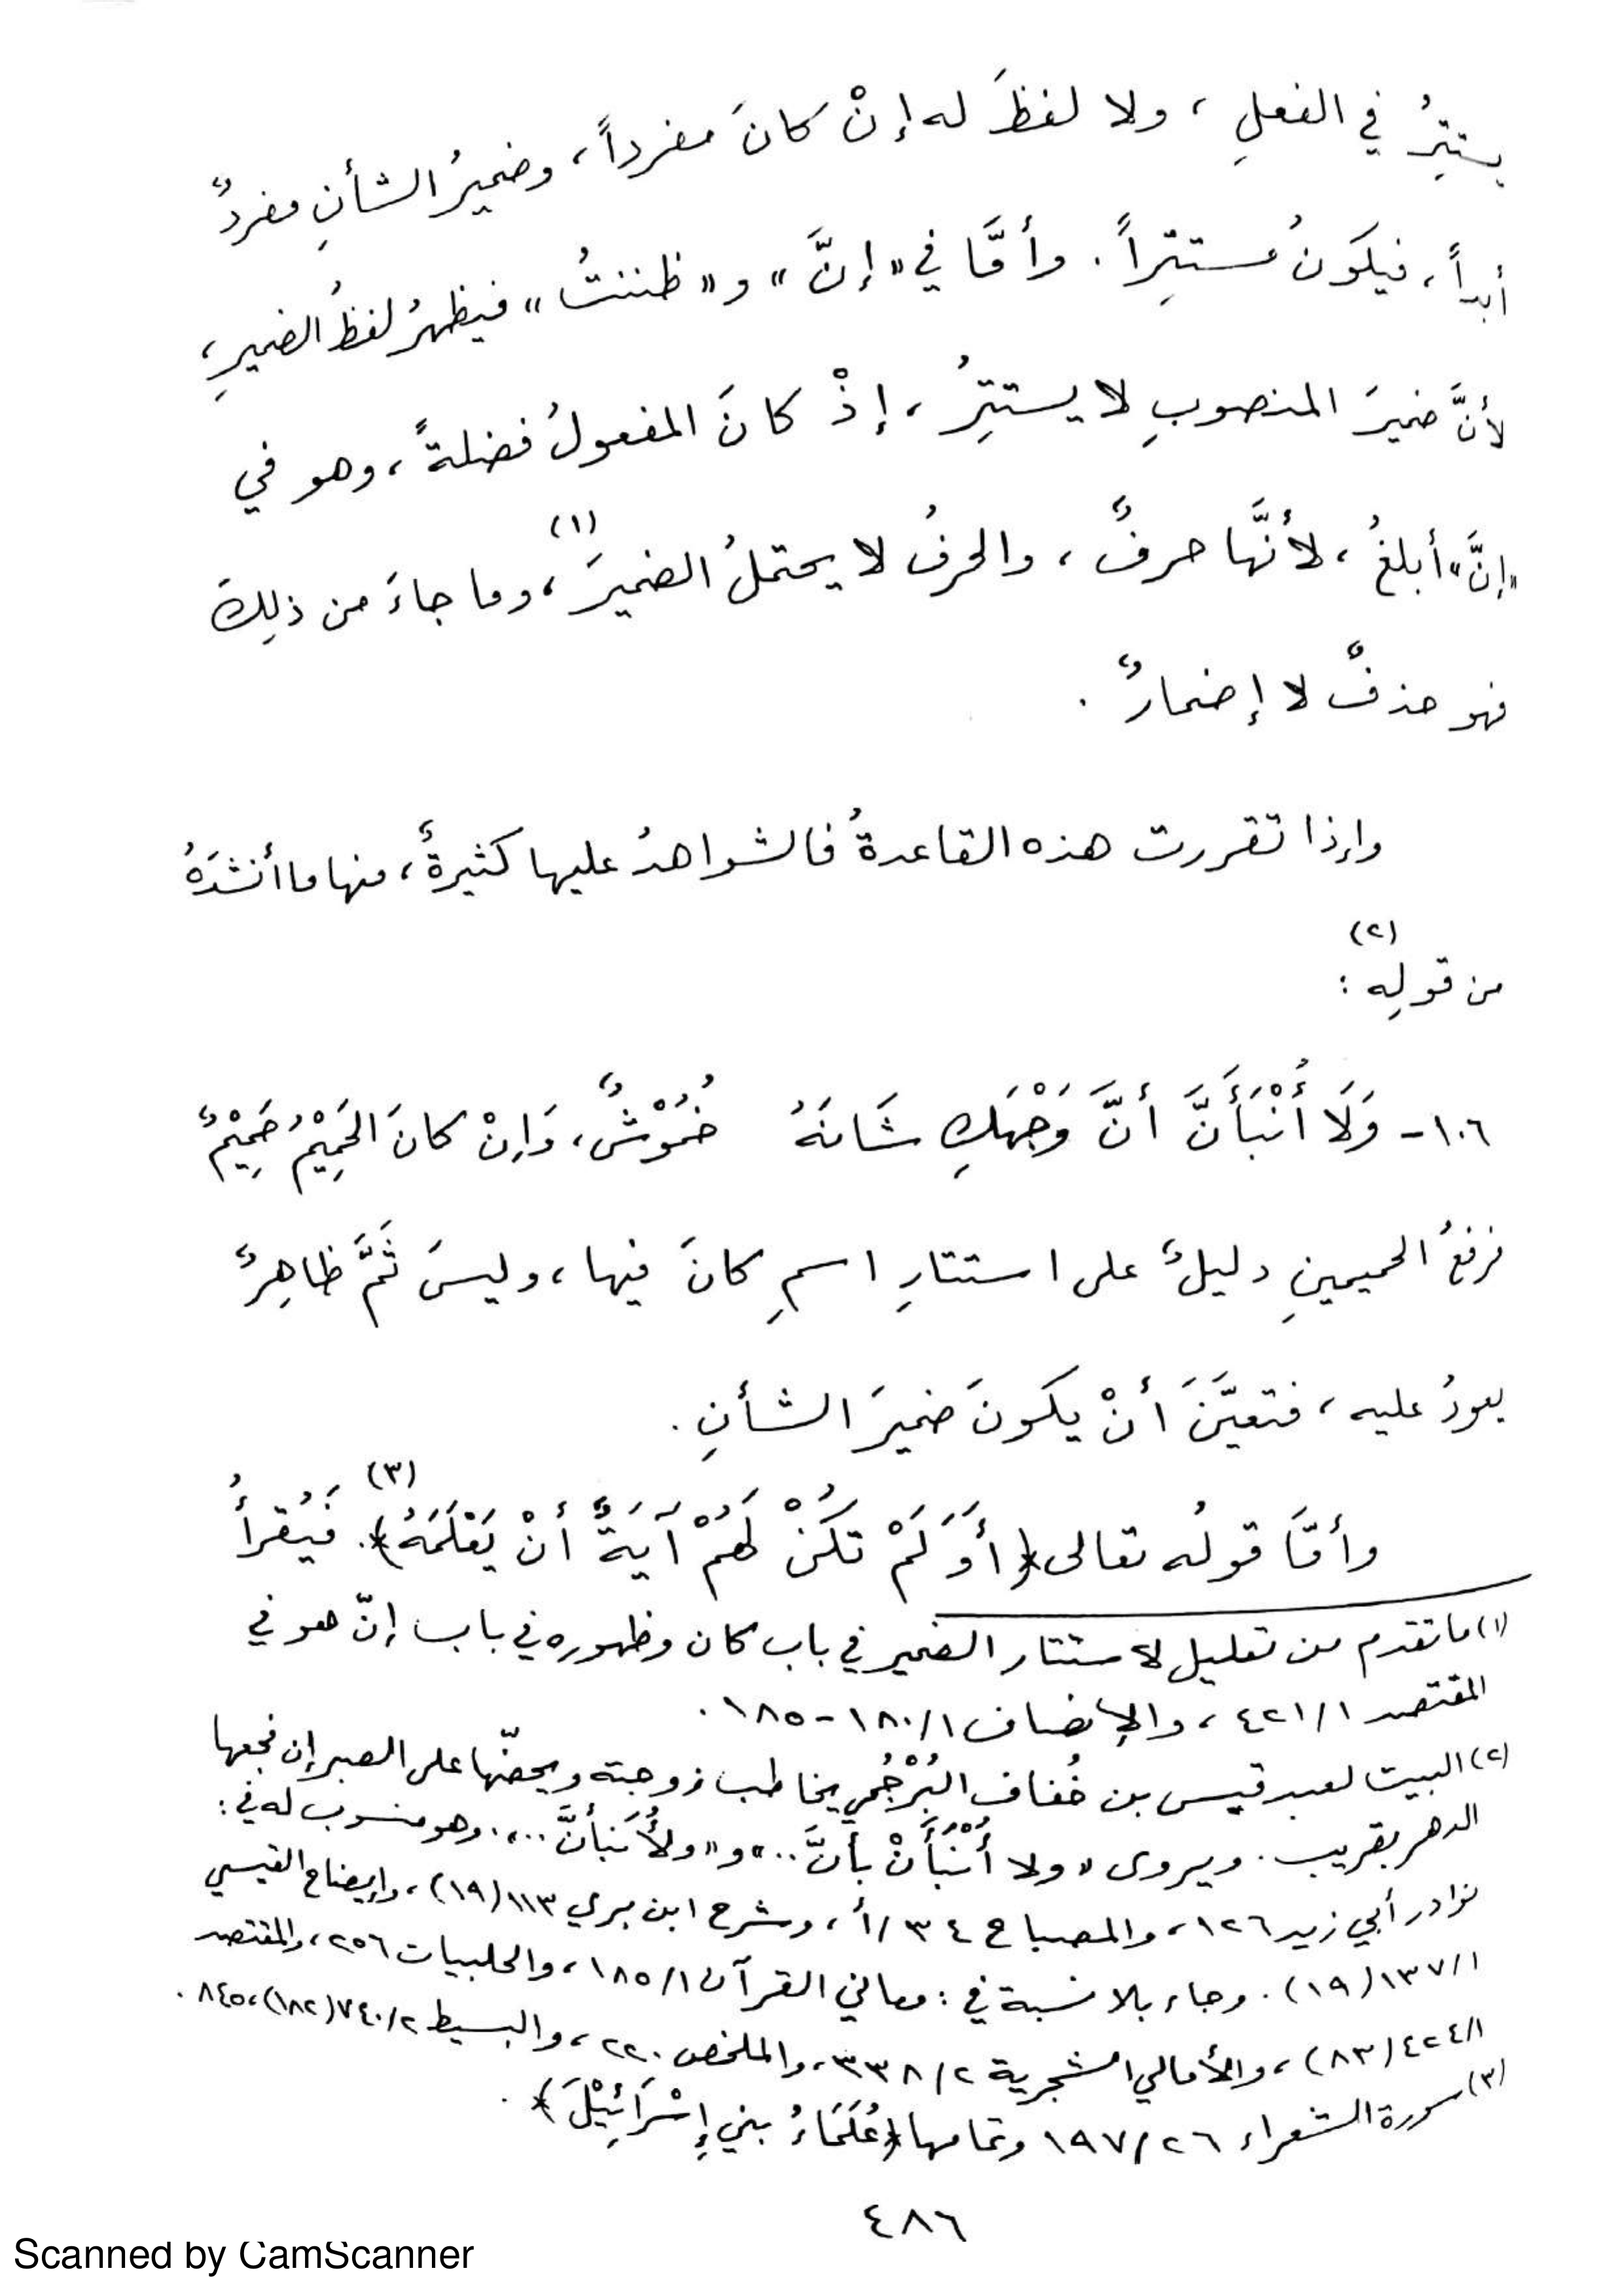 يستترُ في الفعلِ ، ولا لفظَ له إنْ كانَ مفرداً ، وضميرُ الشأنِ مفردٌ
أبداً ، فيكونُ مستتِراً . وأمَّا في «إنَّ» و«ظننتُ» فيظهرُ لفظُ الضميرِ ،
لأنَّ ضميرَ المنصوبِ لا يستتِرُ ، إذْ كانَ المفعولُ فضلةً ، وهو في
«إنَّ» أبلغُ ، لأنَّها حرفٌ ، والحرفُ لا يحتملُ الضميرَ (١) ، وما جاءَ من ذلِكَ
فهو حذفٌ لا إضمارٌ .
وإذا تقررت هذه القاعدةُ فالشواهدُ عليها كثيرةٌ ، منها ما أنشدَهُ
من قولِه (٢) :
١٠٦- وَلَا أُنْبَأَنَّ أنَّ وَجْهَكِ شَانَهُ خُمُوْشٌ ، وَإِنْ كانَ الحَمِيْمُ حَمِيْمُ
فرفعُ الحميمينِ دليلٌ على استتارِ اسمِ كانَ فيها ، وليسَ ثَمَّ ظاهِرٌ
يعودُ عليه ، فتعيَّنَ أنْ يكونَ ضميرَ الشأنِ .
وأمَّا قولُه تعالى ﴿أَوَلَمْ تَكُنْ لَهُمْ آيَةٌ أنْ يَعْلَمَهُ﴾ (٣) . فَيُقرأُ
(١) ما تقدم من تعليل لاستتار الضمير في باب كان وظهوره في باب إنّ هو في
المقتصد ٤٢١/١ ، والإنصاف ١٨٠/١-١٨٥ .
(٢) البيت لعبد قيس بن خُفاف البُرْجُمي يخاطب زوجته ويحضّها على الصبر إن فجعها
الدهر بقريب . ويروى «ولا أُنْبَأَنْ بأنَّ ..» و«ولأُنبَأنَّ ..» . وهو منسوب له في :
نوادر أبي زيد ١٢٦ ، والمصباح ٣٤/أ ، وشرح ابن بري ١١٣ (١٩) ، وإيضاح القيسي
١٣٧/١ (١٩) . وجاء بلا نسبة في : معاني القرآن ١٨٥/١ ، والحلبيات ٢٥٦ ، والمقتصد
٤٢٤/١ (٨٣) ، والأمالي الشجرية ٣٣٨/٢ ، والملخص ٢٢٠ ، والبسيط ٧٤٠/٢ (١٨٢) ، ٨٤٥ .
(٣) سورة الشعراء ١٩٧/٢٦ وتمامها ﴿عُلَمَاءُ بني إِسْرَائِيْلَ﴾ .
٤٨٦
Scanned by CamScanner